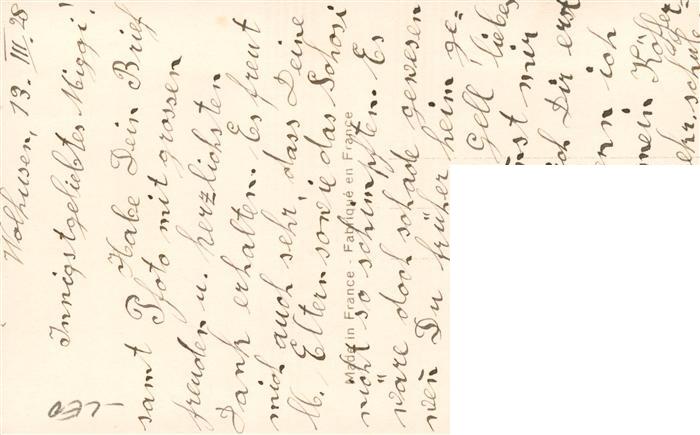 Wolhusen, 13. III. 28
Innigstgeliebtes Miggi!
Habe Dein Brief
samt Pfoto mit grossen
freuden u. herzlichsten
Dank erhalten. Es freut
mich auch sehr, dass Deine
lb. Eltern sowie das Schosi
nicht so schimpften. Es
wäre doch schade gewesen
wen̄ Du früher heim ge=
Gell liebes
mir
ch Dir erst
nn ich
mein Koffer
Made in France - Fabriqué en France